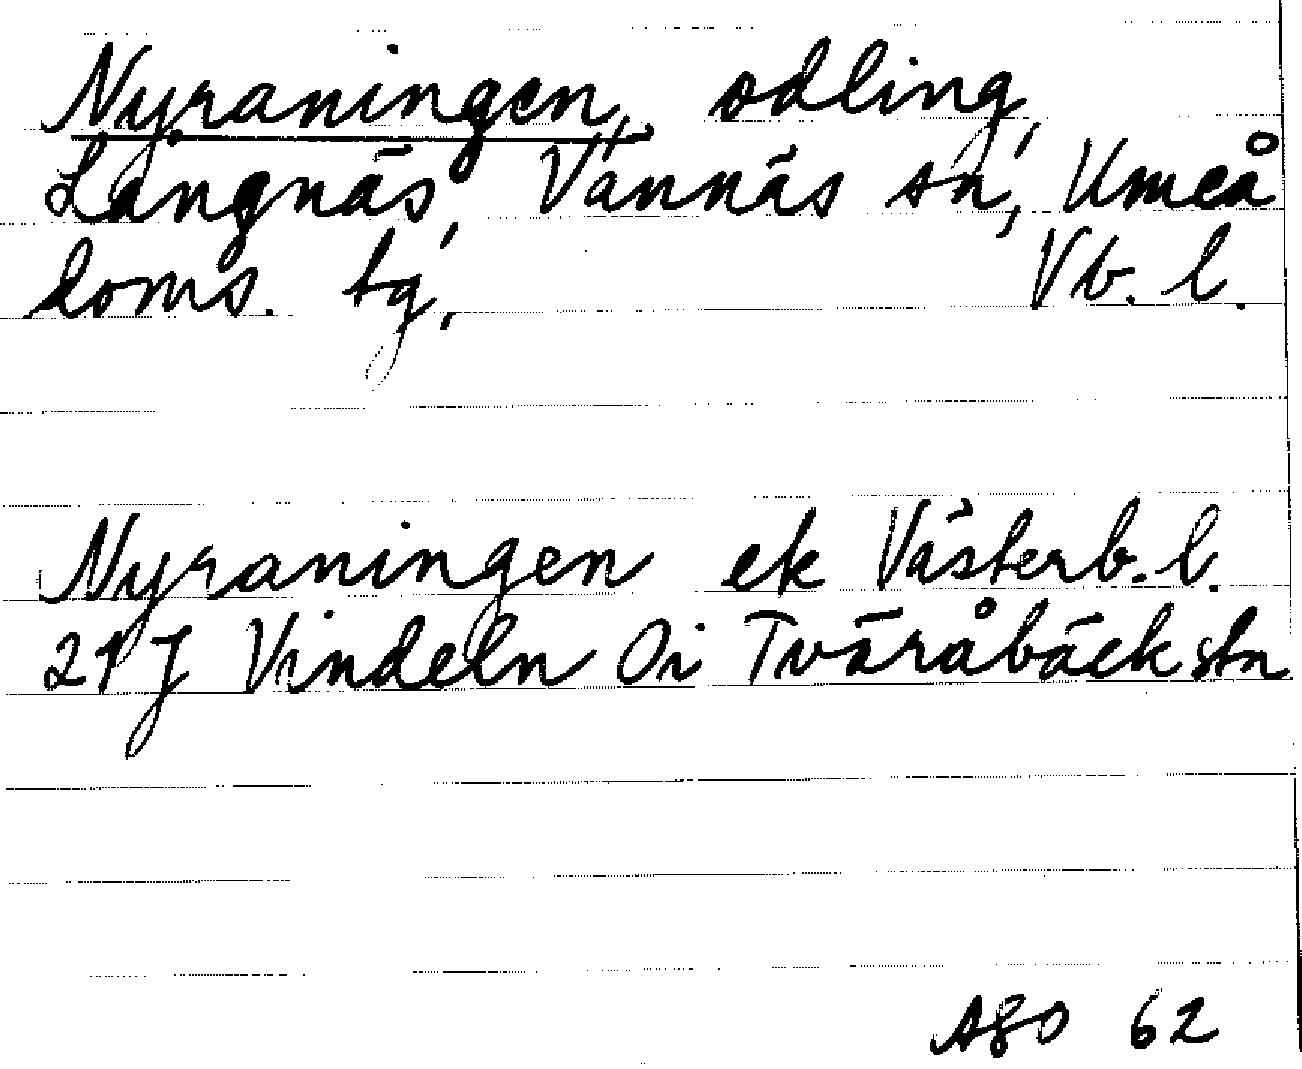 Nyraningen, odling,
Långnäs, Vännäs sn, Umeå
doms. tg, Vb. l.
Nyraningen ek Västerb. l.
21 J Vindeln Oi Tväråbäck stn
ASO 62